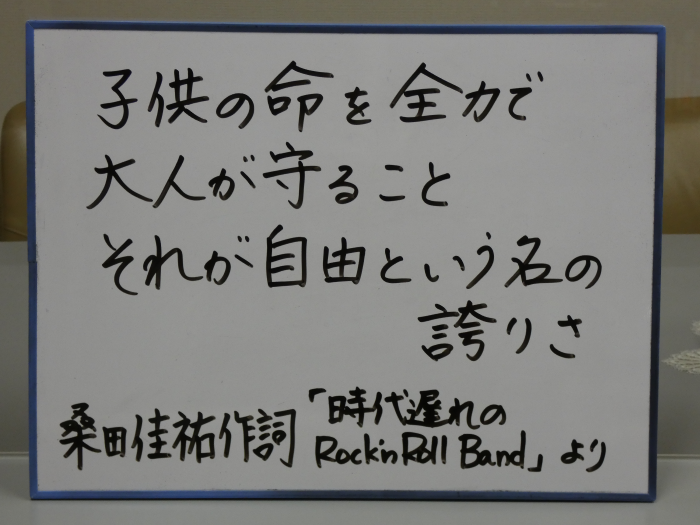 子供の命を全力で
大人が守ること
それが自由という名の
誇りさ
桑田佳祐作詞「時代遅れの
Rock'n Roll Band」より